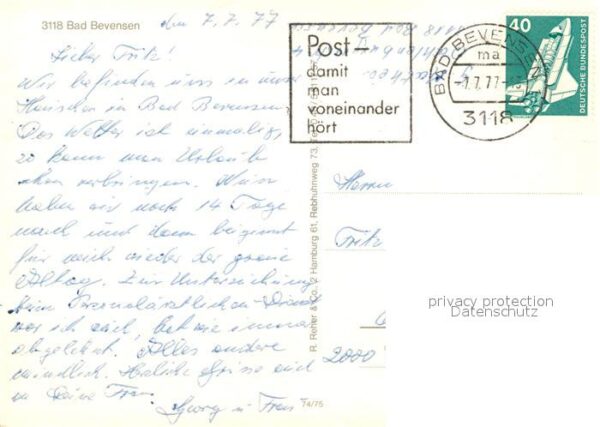 3118 Bad Bevensen
den 7.7.77
Lieber Fritz!
Wir befinden uns in unser
Häuschen in Bad Bevensen
Das Wetter ist einmalig,
so kann man Urlaub
schon verbringen. Nun
haben wir noch 14 Tage
noch und dann beginnt
für mich wieder der graue
Alltag. Zur Untersuchung
beim Personalärztlichen Dienst
war ich auch, hat wie immer
abgelehnt. Alles andere
mündlich. Herzliche Grüsse auch
an Deine Frau
Georg u. Frau
Post –
damit
man
voneinander
hört
BAD BEVENSEN
ma
-7.7.77-
3118
40
DEUTSCHE BUNDESPOST
3118 Bad Bevensen
R. Reher & Co., 2 Hamburg 61, Rebhuhnweg 73,
74/75
Herrn
Fritz
2000
privacy protection
Datenschutz